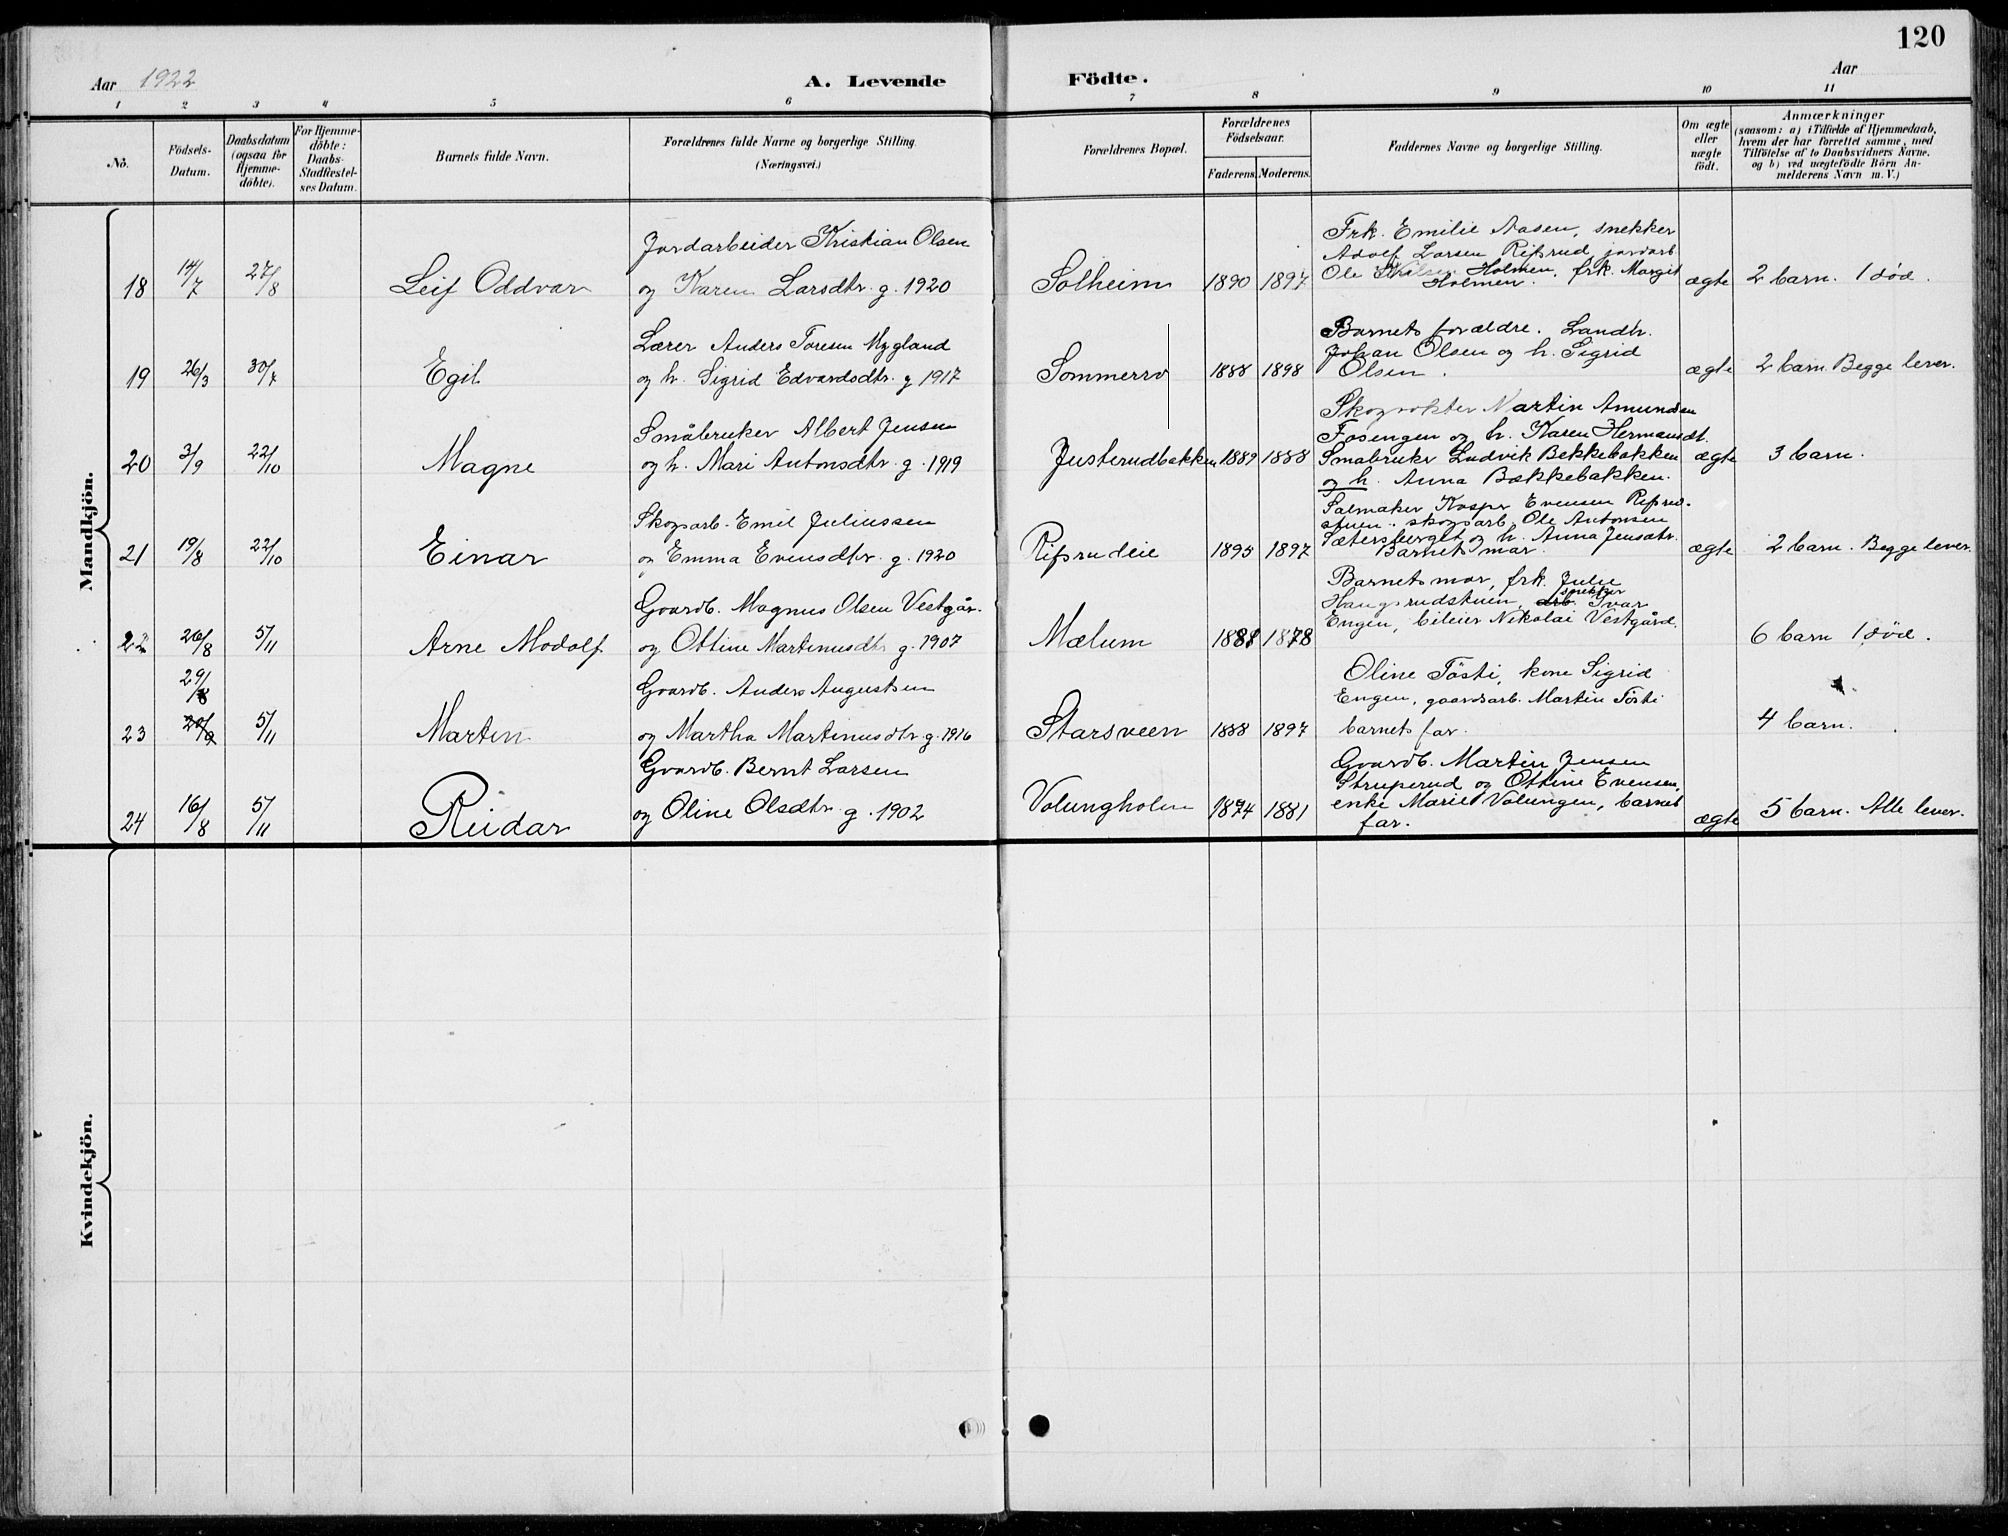 120
Aar 1922 A. Levende Födte. Aar
1 2 3 4 5 6 7 8 9 10 11
No.
Födsels-Datum.
Daabsdatum (ogsaa for Hjemme-döbte).
For Hjemme-döbte: Daabs-Stadfæstel-ses Datum.
Barnets fulde Navn.
Forældrenes fulde Navne og borgerlige Stilling. (Næringsvei.)
Forældrenes Bopæl.
Forældrenes Födselsaar.
Faderens. Moderens.
Faddernes Navne og borgerlige Stilling.
Om ægte eller uægte födt.
Anmærkninger
(saasom: a) i Tilfælde af Hjemmedaab, hvem der har forrettet samme, med Tilföielse af to Daabsvidners Navne. og b) ved uægtefödte Börn An-melderens Navn m. V.)
Mandkjön.
18 14/7 27/8 Leif Oddvar
Jordarbeider Kristian Olsen
og Karen Larsdtr. g. 1920
Solheim 1890 1897
Frk. Emilie Aasen, snekker
Adolf Larsen Rifsrud, jordarb
Ole Holmen, frk. Margit
Holmen.
ægte 2 barn. 1 død.
19 26/3 30/7 Egil
Lærer Anders Toresen Mygland
og h. Sigrid Edvardsdtr. g 1917
Sommerro 1888 1898
Barnets forældre. Landh.
Johan Olsen og h. Sigrid
Olsen.
ægte 2 barn. Begge lever.
20 3/9 22/10 Magne
Småbruker Albert Jensen
og h. Mari Antonsdtr. g. 1919
Justerudbakken 1889 1888
Skogvokter Martin Amundsen
Fosengen og h. Karen Hermansdt.
Småbruker Ludvik Bekkebakken
og h. Anna Bækkebakken.
ægte 3 barn.
21 19/8 22/10 Einar
Skogsarb. Emil Juliussen
og Emma Evensdtr. g. 1920
Rifsrudeie 1895 1897
Salmaker Kasper Evensen Rifsrud-
stuen, skogsarb. Ole Antonsen
Sætersberget og h. Anna Jensdtr.
Barnets mar.
ægte 2 barn. Begge lever.
22 26/8 5/11 Arne Modolf
Gaardb. Magnus Olsen Vestgår.
og Ottine Martinusdtr g. 1907
Mælum 1881 1878
Barnets mor, frk. Julie
Haugsrudstuen, snekker Ivar
Engen, bileier Nikolai Vestgård.
6 barn 1 død.
23 29/8 5/11 Martin
Gaardb. Anders Augustsen
og Martha Martinusdtr g. 1916
Starsveen 1888 1897
Oline Tösti, kone Sigrid
Engen, gaardsarb. Martin Tösti
barnets far.
4 barn.
24 16/8 5/11 Reidar
Gaardb. Bernt Larsen
og Oline Olsdtr g. 1902
Volungholen 1874 1881
Gaardb. Martin Jensen
Struperud og Ottine Evensen,
enke Marie Volungen, barnets
far.
ægte 5 barn. Alle lever.
Kvindekjön.